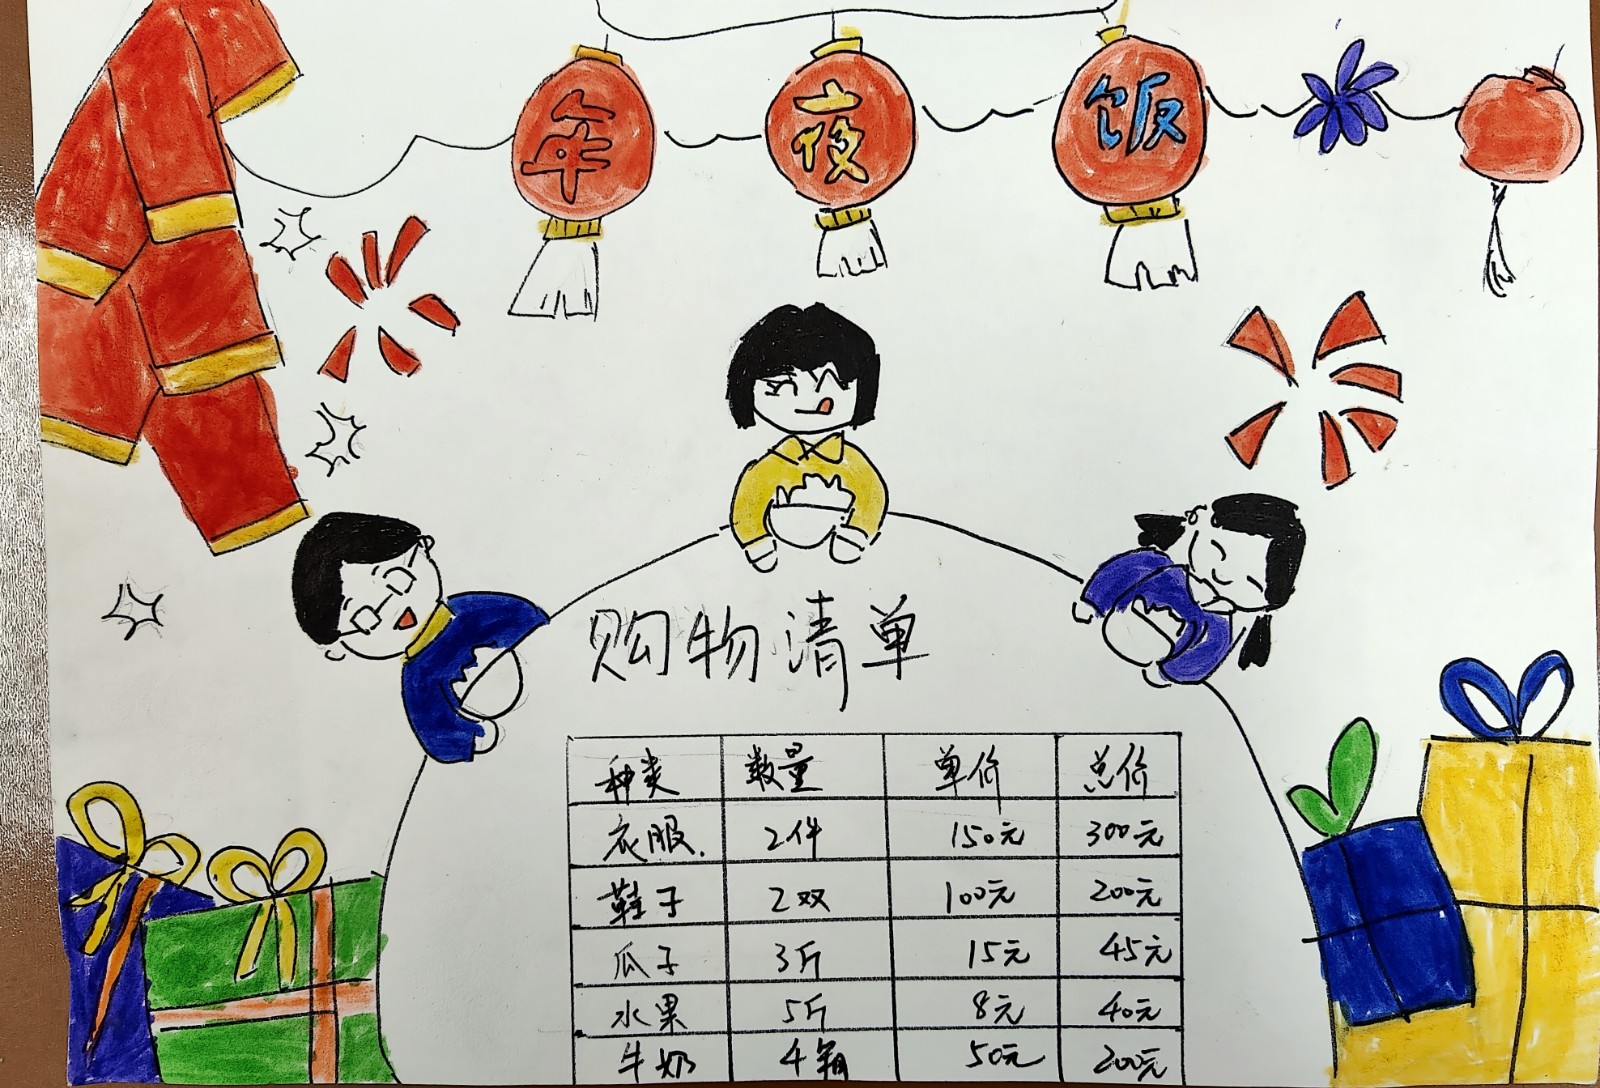 年夜饭
购物清单
种类 数量 单价 总价
衣服. 2件 150元 300元
鞋子 2双 100元 200元
瓜子 3斤 15元 45元
水果 5斤 8元 40元
牛奶 4箱 50元 200元